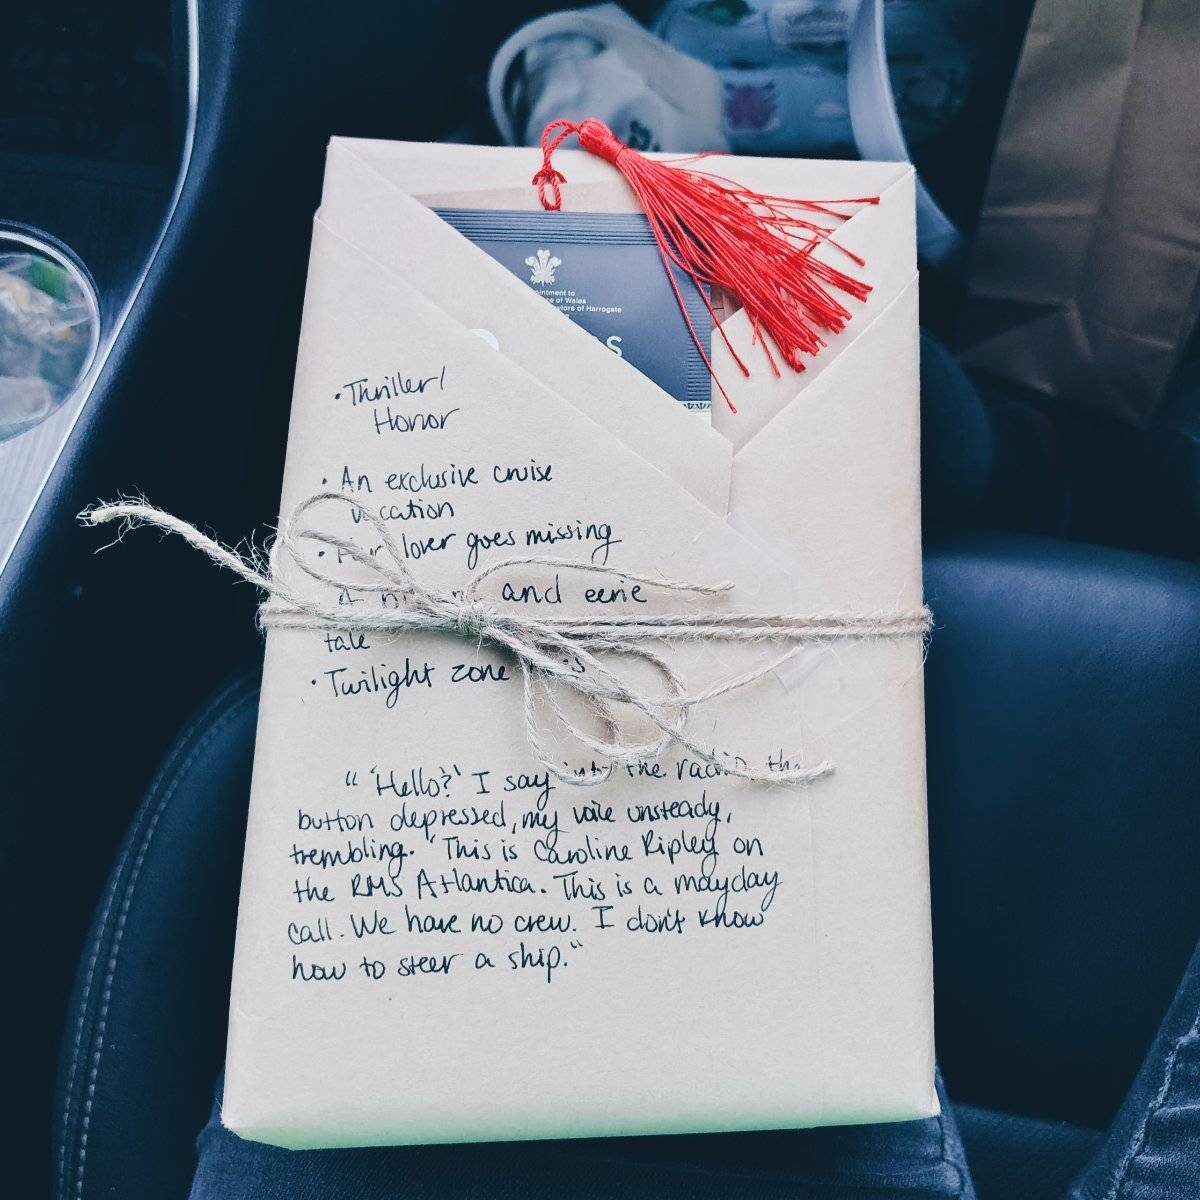 ointment to
ce of Wales
ylors of Harrogate
• Thriller/
Horror
• An exclusive cruise
vacation
• Her lover goes missing
and eerie
tale
• Twilight zone
" 'Hello?' I say into the radio, the
button depressed, my voice unsteady,
trembling. "This is Caroline Ripley on
the RMS Atlantica. This is a mayday
call. We have no crew. I don't know
how to steer a ship."